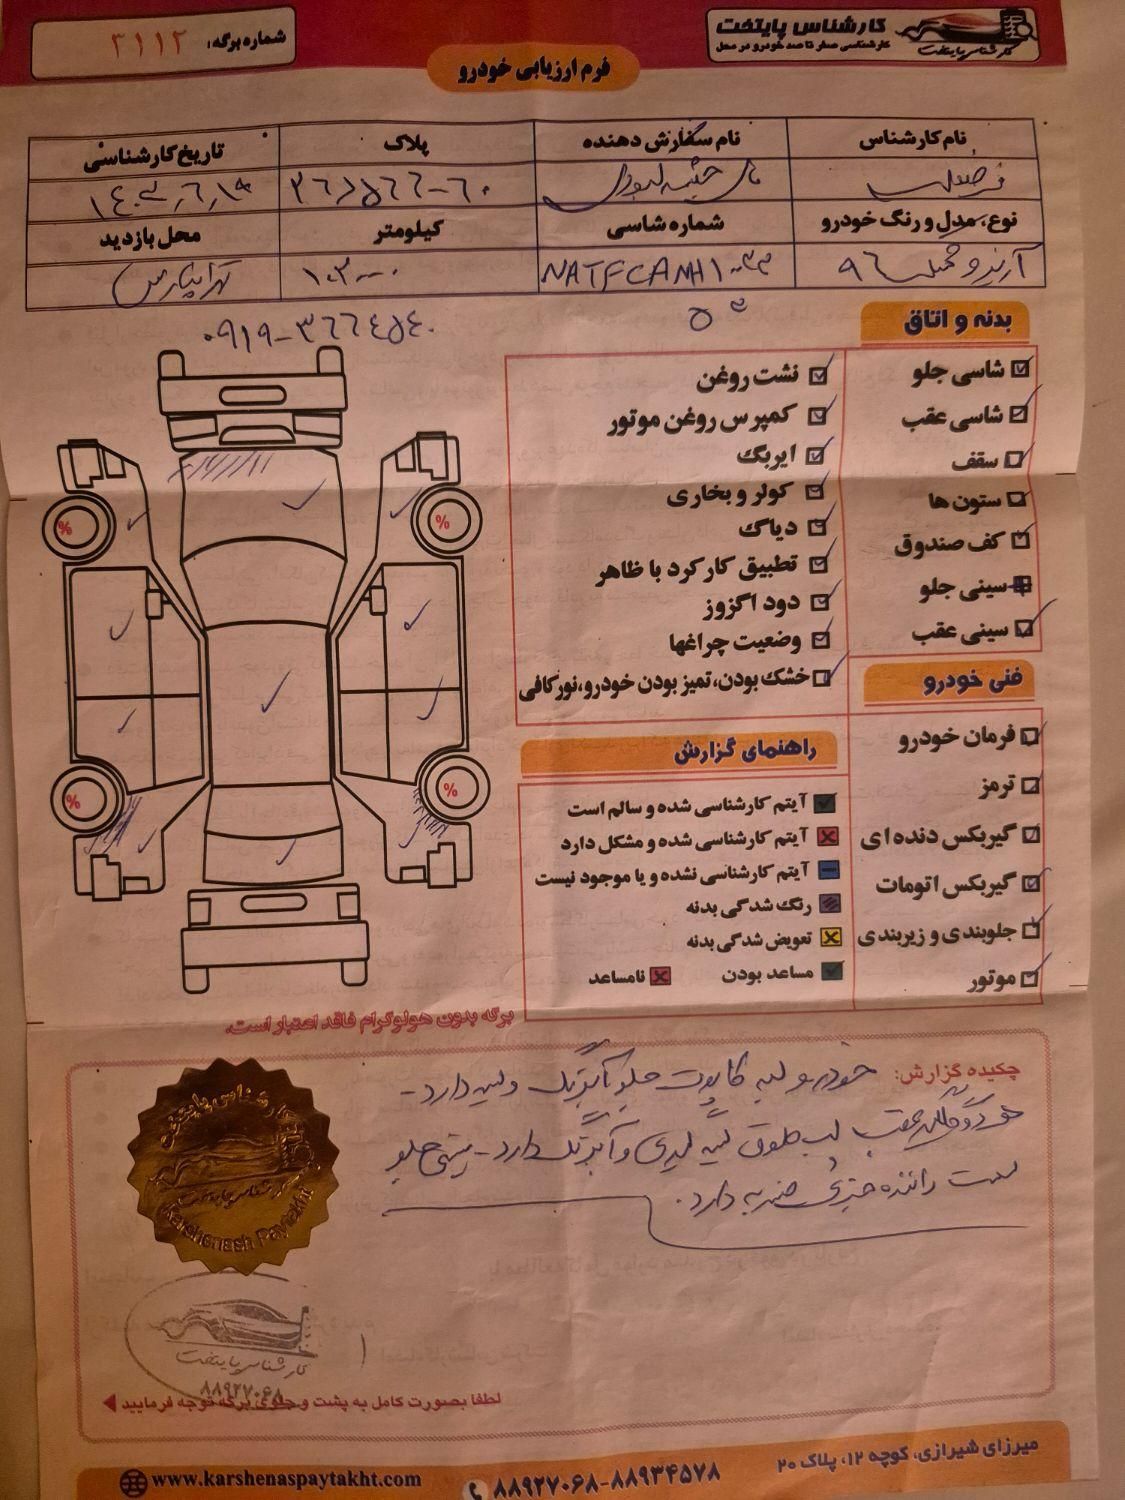 کارشناس پایتخت
کارشناسی صفر تا صد خودرو در محل
کارشناس پایتخت
شماره برگه: ۳۱۱۲
فرم ارزیابی خودرو
نام کارشناس
نام سفارش دهنده
پلاک
تاریخ کارشناسی
۶۰-
نوع، مدل و رنگ خودرو
شماره شاسی
کیلومتر
محل بازدید
۹۶
NATFCAMH1
۱۰۳۰۰۰
تهرانپارس
۰۹۱۹-۳۶۶۴۵۴۰
بدنه و اتاق
شاسی جلو
شاسی عقب
سقف
ستون ها
کف صندوق
سینی جلو
سینی عقب
نشت روغن
کمپرس روغن موتور
ایربگ
کولر و بخاری
دیاگ
تطبیق کارکرد با ظاهر
دود اگزوز
وضعیت چراغها
خشک بودن، تمیز بودن خودرو، نور کافی
فنی خودرو
فرمان خودرو
ترمز
گیربکس دنده ای
گیربکس اتومات
جلوبندی و زیربندی
موتور
راهنمای گزارش
آیتم کارشناسی شده و سالم است
آیتم کارشناسی شده و مشکل دارد
آیتم کارشناسی نشده و یا موجود نیست
رنگ شدگی بدنه
تعویض شدگی بدنه
مساعد بودن
نامساعد
%
%
%
%
برگه بدون هولوگرام فاقد اعتبار است.
چکیده گزارش: خودرو لبه کاپوت جلو آبرنگ و لیسه دارد -
عقب لب گلویی لیسه گیری و آبرنگ دارد - سینی جلو
سمت راننده جزئی ضربه دارد.
کارشناس پایتخت
کارشناس پایتخت
Karshenash Paytakht
کارشناس پایتخت
۸۸۹۲۷۰۶۸
لطفا بصورت کامل به پشت و جلوی برگه توجه فرمایید
میرزای شیرازی، کوچه ۱۲، پلاک ۲۰
۸۸۹۲۷۰۶۸-۸۸۹۳۴۵۷۸
www.karshenaspaytakht.com